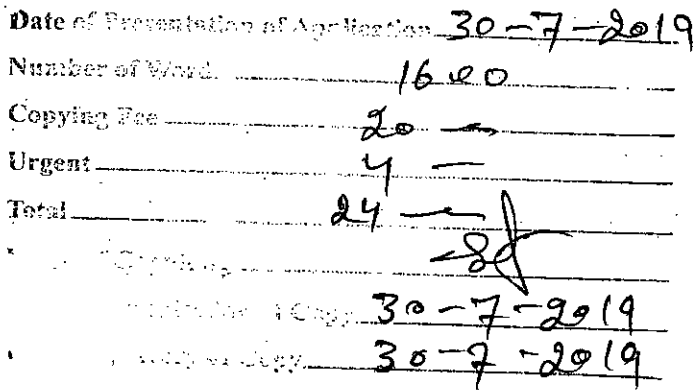 Date of Presentation of Application 30-7-2019
Number of Word. 1600
Copying Fee 20 —
Urgent 4 —
Total 24 —
Copy 30-7-2019
of Copy. 30-7-2019